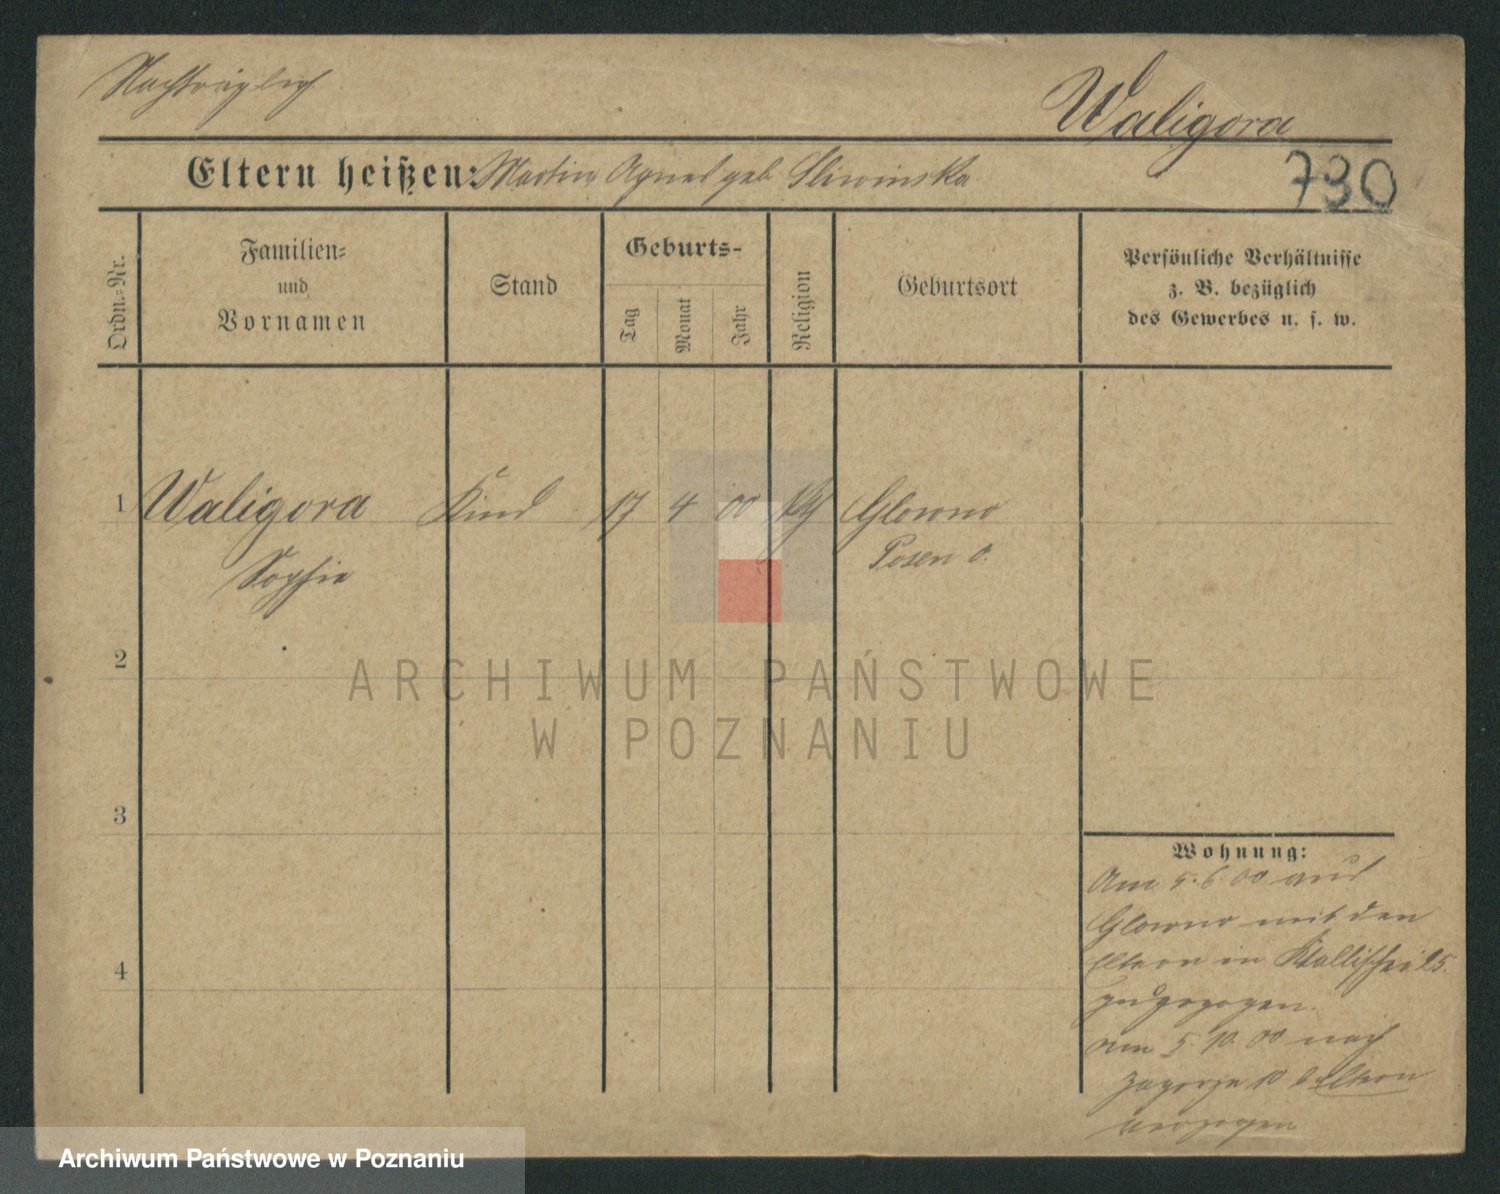 Nachträglich
Waligora
Eltern heißen: Martin Agnes geb. Sliwinska
730
Ordn.-Nr.
Familien-
und
Vornamen
Stand
Geburts-
Tag
Monat
Jahr
Religion
Geburtsort
Persönliche Verhältnisse
z. B. bezüglich
des Gewerbes u. s. w.
1 Waligora Kind 17 4 00 Glowno
Sophie Posen O.
2
3
4
Wohnung:
Am 5.6.00 aus
Glowno mit den
Eltern in Wallischei 25.
zugezogen.
am 5 10. 00 nach
Zagorze 10 Eltern
verzogen
ARCHIWUM PAŃSTWOWE
W POZNANIU
Archiwum Państwowe w Poznaniu